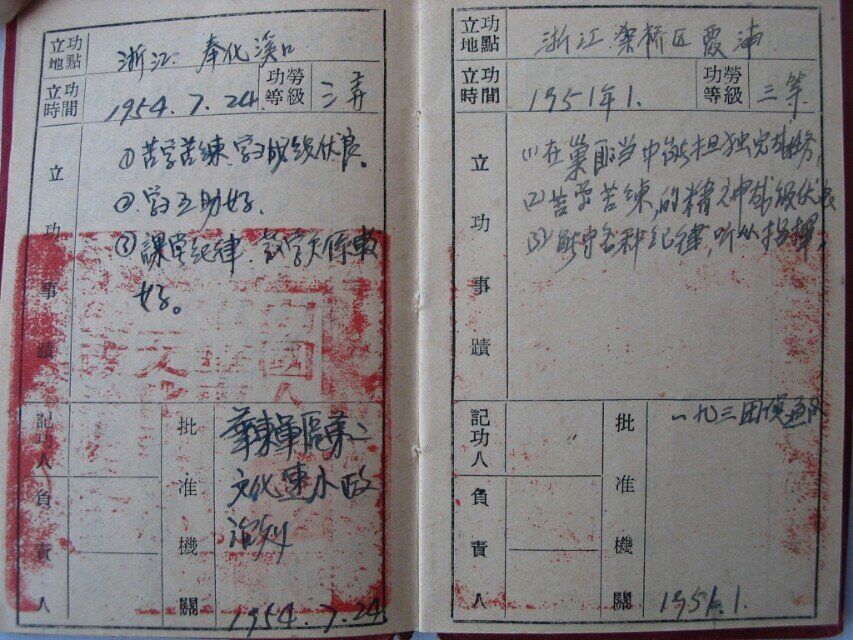 立功地點
浙江 奉化溪口
立功時間
1954.7.24
功勞等級
三等
立功事蹟
①苦学苦練,学习成績优良。
②学习互助好。
③課堂紀律,教学关係較
好。
記功人負責人
批准機關
華東軍區第二
文化速小政
治処
1954.7.24
立功地點
浙江 架桥区霞浦
立功時間
1951年1.
功勞等級
三等
立功事蹟
(1)在 当中能 担独完成任务,
(2)苦学苦練,的精神成績优良
(3)能守各种纪律,听从指揮,
記功人負責人
批准機關
一九三团
1951.1.